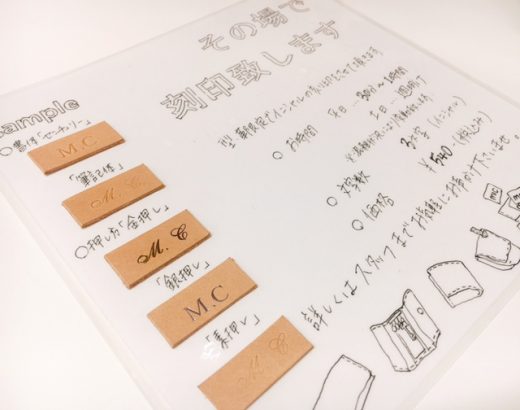 その場で
刻印致します
ample
○書体「センチュリー」
M.C
「筆記体」
M. C
○押し方「金押し」
M. C
「銀押し」
M.C
「素押し」
M. C
○お時間
平日…30分〜1時間
土日…1週間
○文字数
3文字(イニシャル)
○価格
¥540-(税込み)
詳しくはスタッフまでお気軽にお声がけ下さいませ。